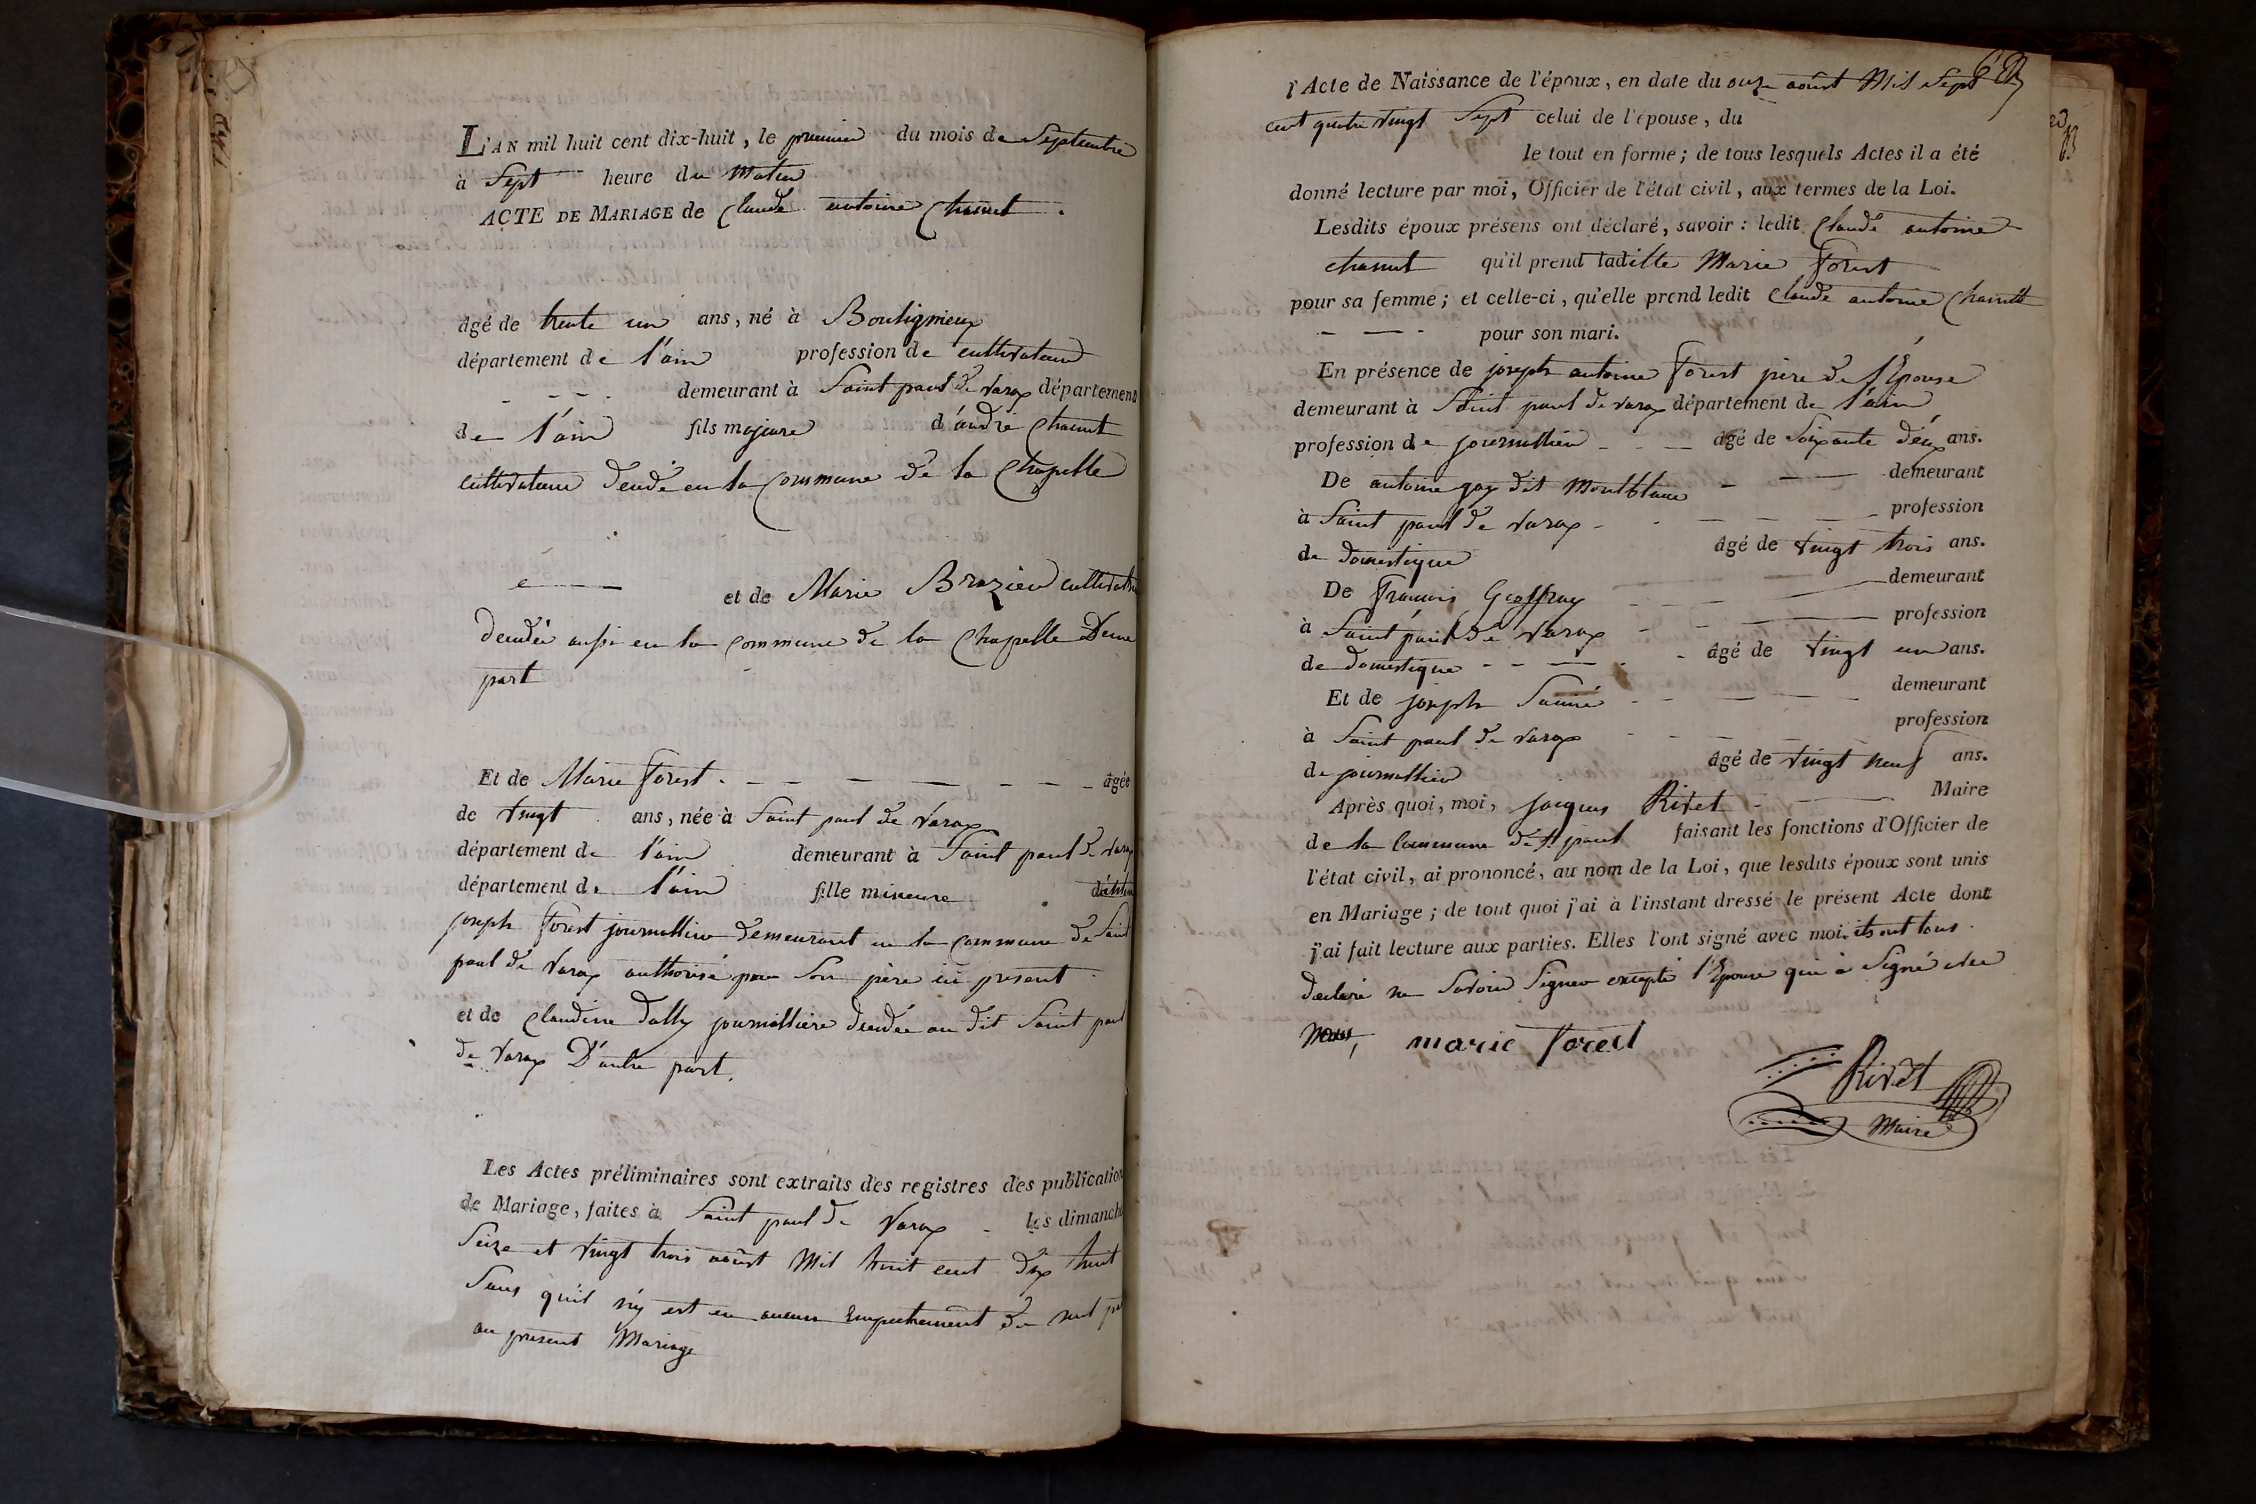 L'AN mil huit cent dix-huit, le premier du mois de Septembre
à Sept heure du matin
ACTE DE MARIAGE de Claude antoine Chanut
âgé de trente un ans, né à Bouligneux
département de l'ain profession de cultivateur
demeurant à Saint paul de Varax département
de l'ain fils majeure d'andré Chanut
cultivateur décédé en la Commune de la Chapelle
et de Marie Brazier
décédée aussi en la commune de la Chapelle D'une
part
Et de Marie forest âgée
de vingt ans, née à Saint paul de Varax
département de l'ain demeurant à Saint paul de Varax
département de l'ain fille mineure
joseph forest journallier demeurant en la commune de Saint
paul de Varax authorisé par Son père ici present
et de Claudine Dally journallière décédée au dit Saint paul
de Varax D'autre part.
Les Actes préliminaires sont extraits des registres des publication
de Mariage, faites à Saint paul de Varax les dimanche
Seize et vingt trois août Mil huit cent dix huit
Sans qu'il n'y est eu aucun Empechement de
au present Mariage
l'Acte de Naissance de l'époux, en date du onze août Mil Sept
cent quatre vingt Sept celui de l'épouse, du
le tout en forme; de tous lesquels Actes il a été
donné lecture par moi, Officier de l'état civil, aux termes de la Loi.
Lesdits époux présens ont déclaré, savoir: ledit Claude antoine
chanut qu'il prend ladite Marie Forest
pour sa femme; et celle-ci, qu'elle prend ledit Claude antoine Chanutt
pour son mari.
En présence de joseph antoine Forest père de l'Epouse
demeurant à Saint paul de varax département de l'ain
profession de journallier âgé de Soixante deux ans.
De antoine gay dit Montblanc demeurant
à Saint paul de Varax profession
de domestique âgé de vingt trois ans.
De François Geoffray demeurant
à Saint paul de Varax profession
de domestique âgé de vingt un ans.
Et de joseph demeurant
à Saint paul de Varax profession
de journallier âgé de vingt neuf ans.
Après quoi, moi, jacques Rivet Maire
de la Commune de St paul faisant les fonctions d'Officier de
l'état civil, ai prononcé, au nom de la Loi, que lesdits époux sont unis
en Mariage; de tout quoi j'ai à l'instant dressé le présent Acte dont
j'ai fait lecture aux parties. Elles l'ont signé avec moi. ils ont tous
declaré ne Savoir Signer excepté l'Epouse qui à Signé avec
Nous, marie forest
Rivet
Maire